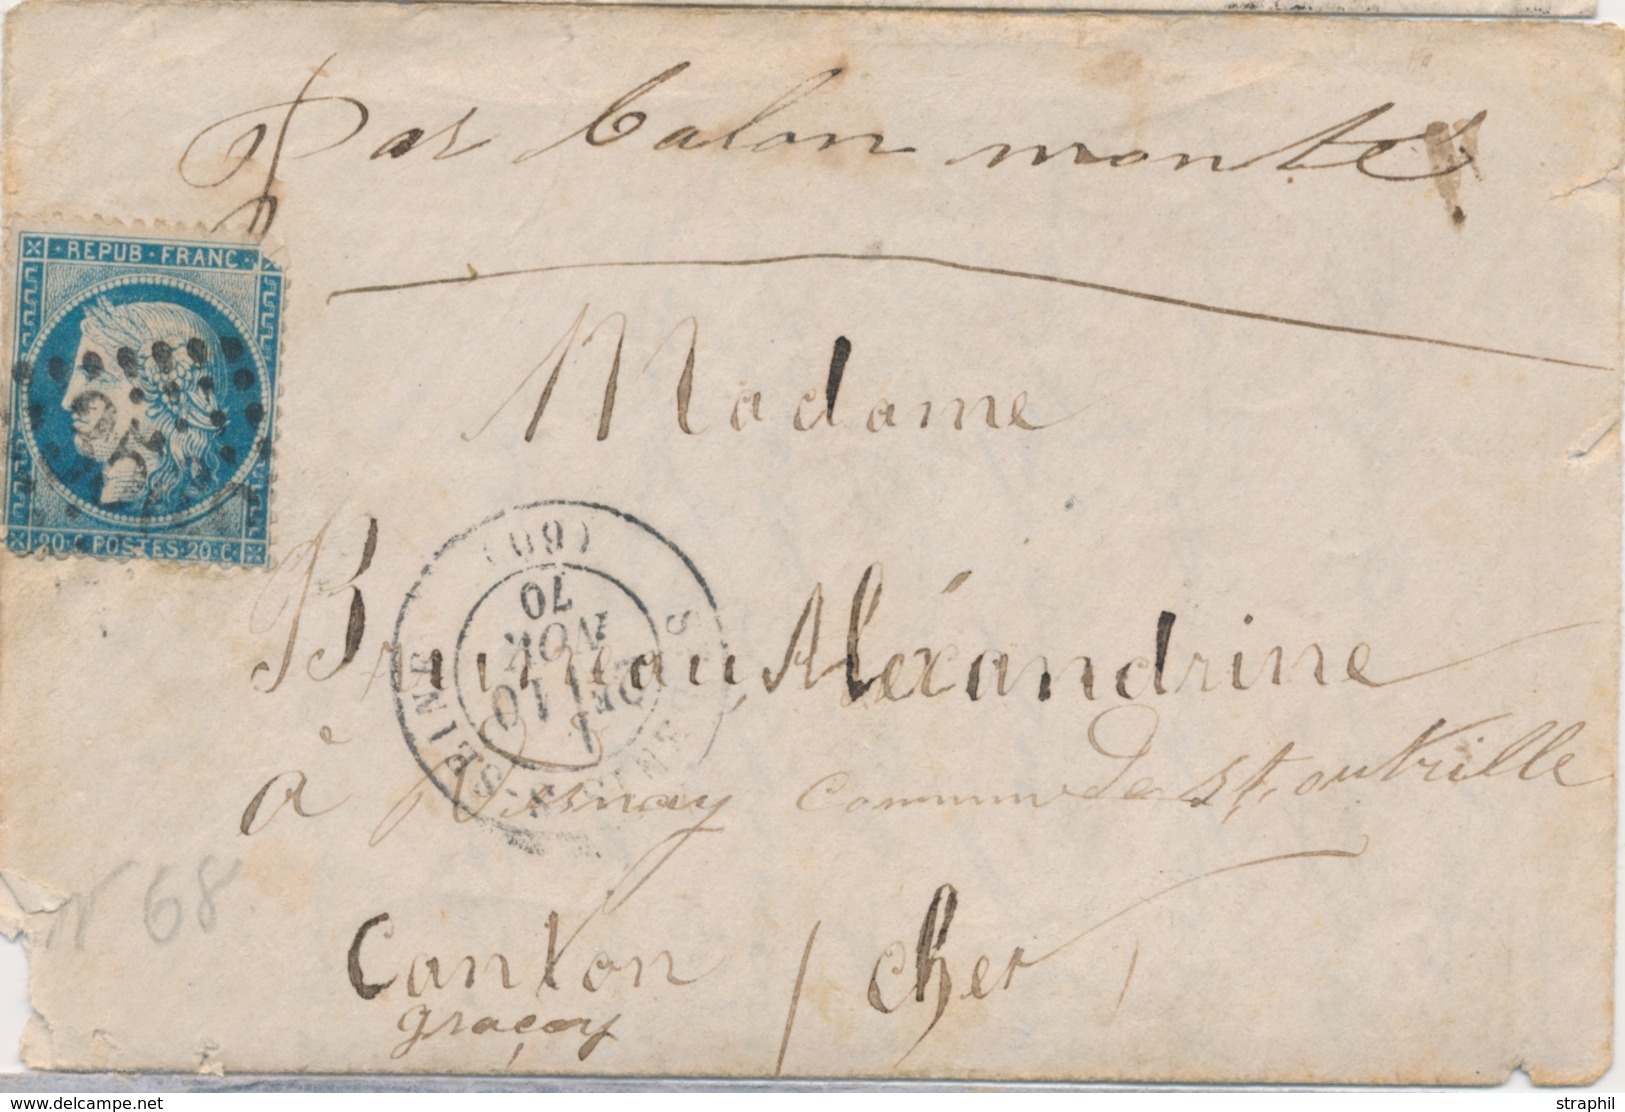 Par balon monté
· REPUB · FRANC ·
20·C POSTES·20·C
Madame
(60)
70
NOV
10
SEINE
Bruneau, Aléxandrine
à Vesnay commune De St. outrille
N 68
Canton / Cher
graçay
delcampe.net
straphil